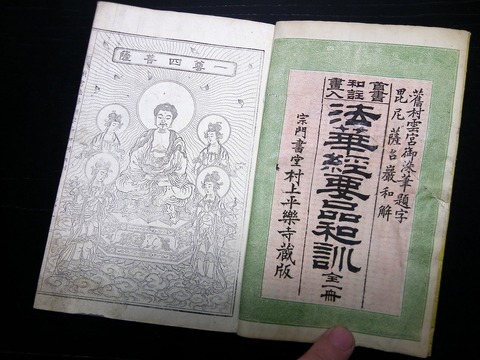 舊村雲宮御染筆題字
毘尼薩台巖和解
首書
和註
畫入
法華經要品和訓 全一冊
宗門書堂村上平樂寺藏版
一尊四菩薩